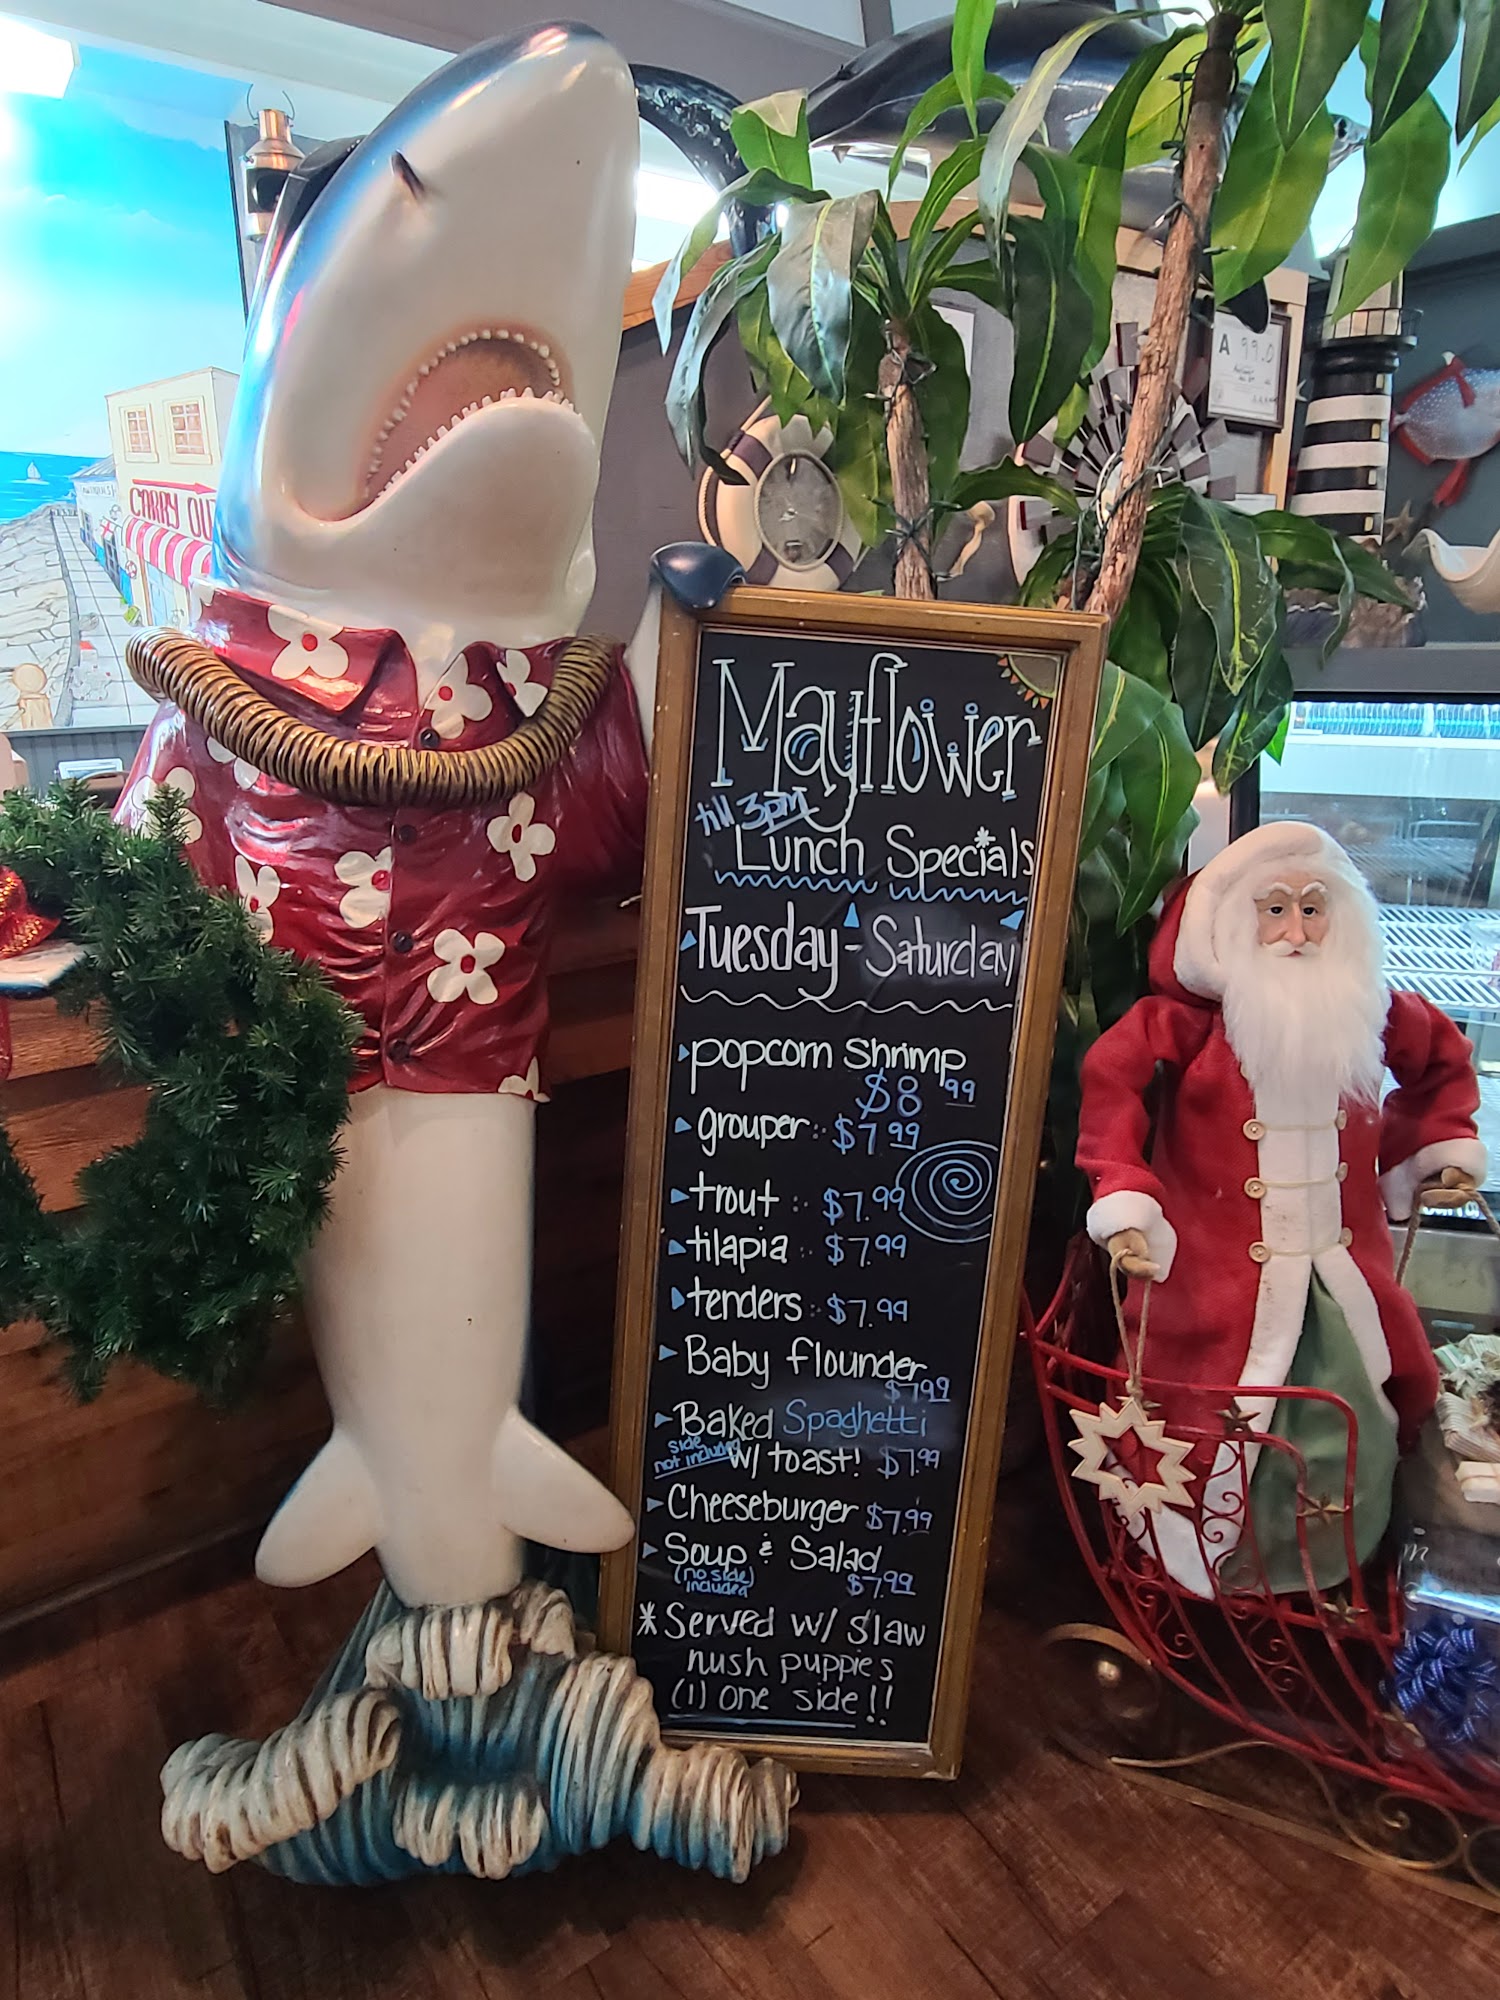 CARRY OU
A 99.0
Mayflower
till 3pm
Lunch Specials
Tuesday - Saturday
popcorn Shrimp
$8.99
grouper: $7.99
trout: $7.99
tilapia: $7.99
tenders: $7.99
Baby flounder
$7.99
Baked Spaghetti
side
not included
w/ toast! $7.99
Cheeseburger $7.99
Soup & Salad
(no side)
included
$7.99
*Served w/ slaw
hush puppies
(1) one side!!